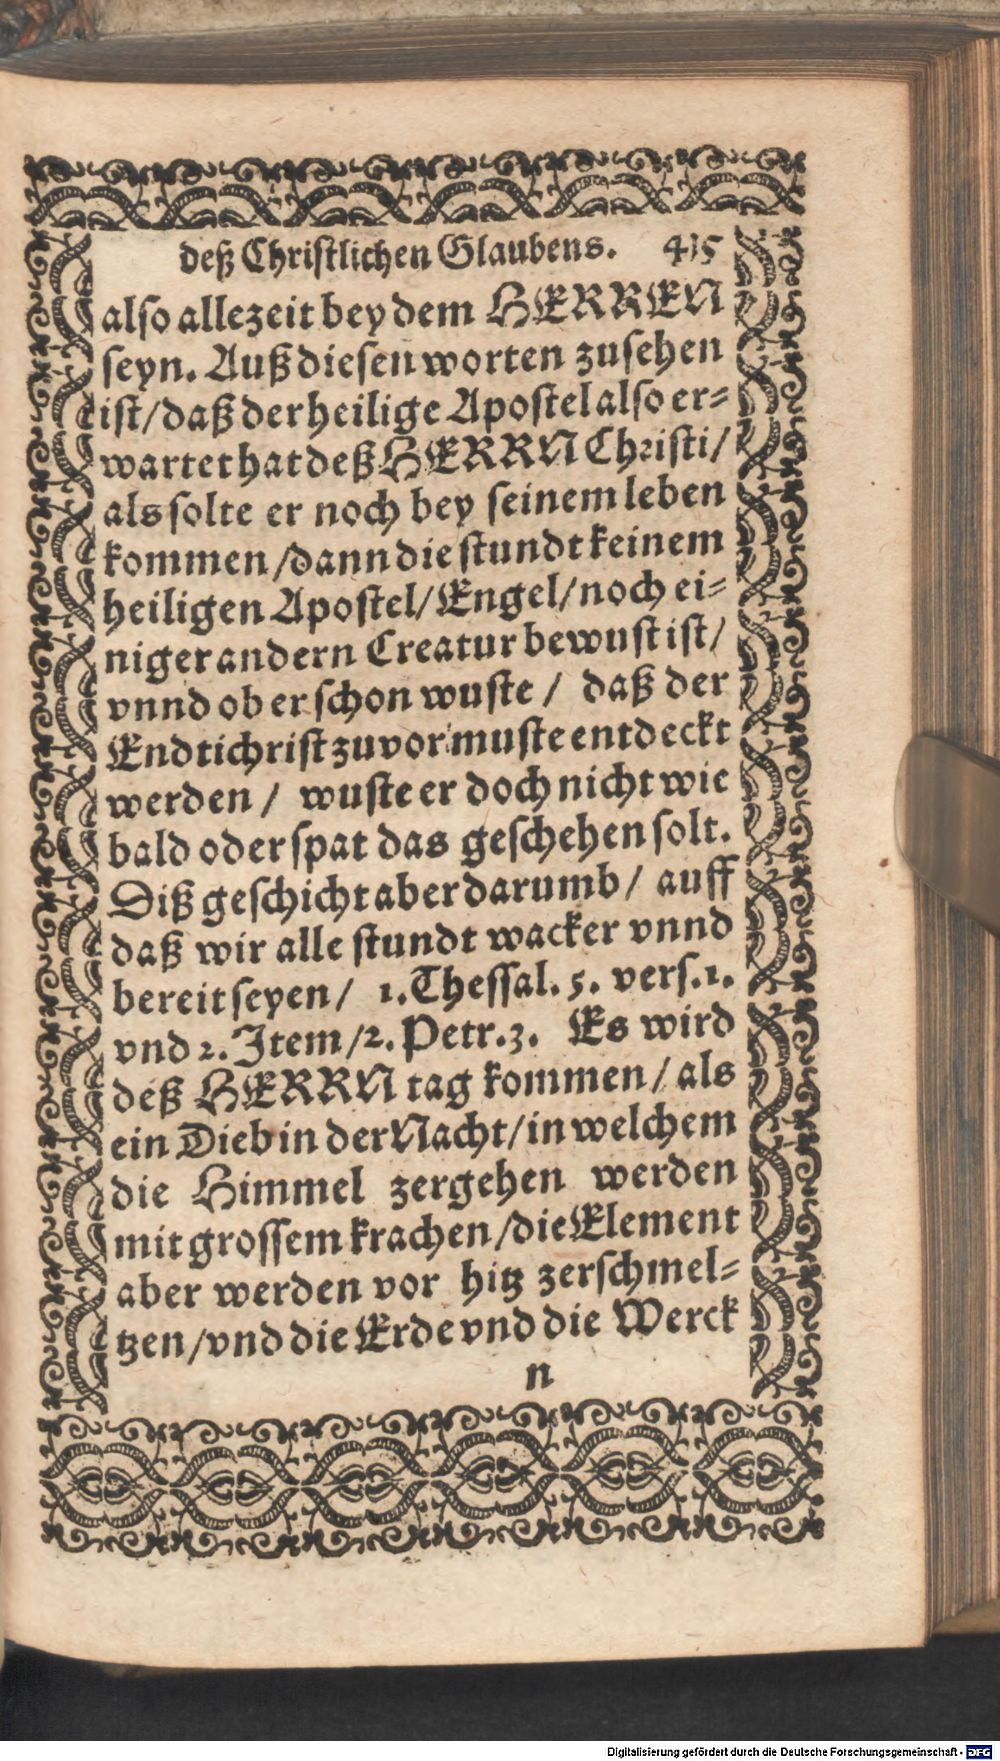 deß Christlichen Glaubens. 415
also allezeit bey dem HERREN
seyn. Auß diesen worten zusehen
ist/ daß der heilige Apostel also er=
wartet hat deß HERRN Christi/
als solte er noch bey seinem leben
kommen/ dann die stundt keinem
heiligen Apostel/ Engel/ noch ei=
niger andern Creatur bewust ist/
vnnd ob er schon wuste/ daß der
Endtichrist zuvor muste entdeckt
werden/ wuste er doch nicht wie
bald oder spat das geschehen solt.
Diß geschicht aber darumb/ auff
daß wir alle stundt wacker vnnd
bereit seyen/ 1. Thessal. 5. vers. 1.
vnd 2. Item/ 2. Petr. 3. Es wird
deß HERRN tag kommen/ als
ein Dieb in der Nacht/ in welchem
die Himmel zergehen werden
mit grossem krachen/ die Element
aber werden vor hitz zerschmel=
tzen/ vnd die Erde vnd die Werck
n
Digitalisierung gefördert durch die Deutsche Forschungsgemeinschaft - DFG